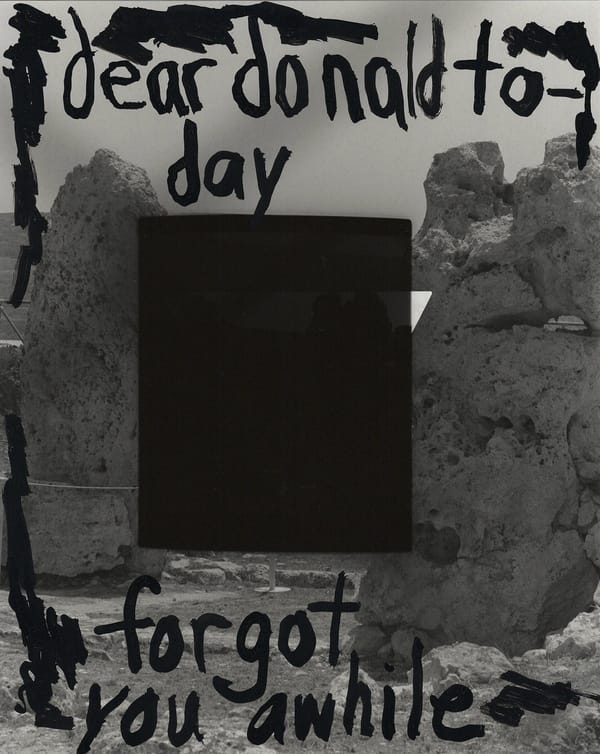 dear donald to-
day
forgot
you awhile